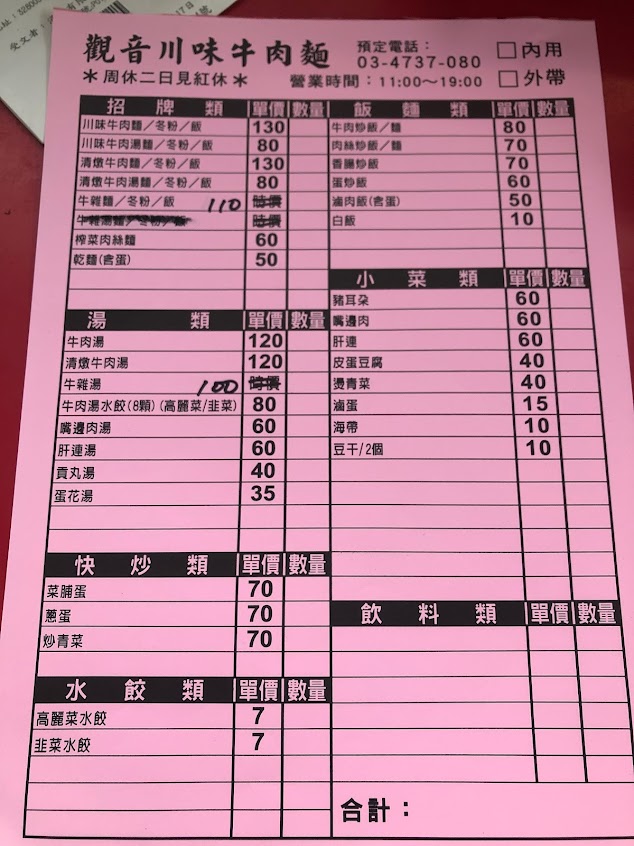 觀音川味牛肉麵
＊周休二日見紅休＊
預定電話：
03-4737-080
營業時間：11:00～19:00
□內用
□外帶
招牌類 單價 數量
川味牛肉麵／冬粉／飯 130
川味牛肉湯麵／冬粉／飯 80
清燉牛肉麵／冬粉／飯 130
清燉牛肉湯麵／冬粉／飯 80
牛雜麵／冬粉／飯 110 時價
牛雜湯麵／冬粉／飯 時價
榨菜肉絲麵 60
乾麵(含蛋) 50
湯類 單價 數量
牛肉湯 120
清燉牛肉湯 120
牛雜湯 100 時價
牛肉湯水餃(8顆)(高麗菜/韭菜) 80
嘴邊肉湯 60
肝連湯 60
貢丸湯 40
蛋花湯 35
快炒類 單價 數量
菜脯蛋 70
蔥蛋 70
炒青菜 70
水餃類 單價 數量
高麗菜水餃 7
韭菜水餃 7
飯麵類 單價 數量
牛肉炒飯／麵 80
肉絲炒飯／麵 70
香腸炒飯 70
蛋炒飯 60
滷肉飯(含蛋) 50
白飯 10
小菜類 單價 數量
豬耳朵 60
嘴邊肉 60
肝連 60
皮蛋豆腐 40
燙青菜 40
滷蛋 15
海帶 10
豆干/2個 10
飲料類 單價 數量
合計：